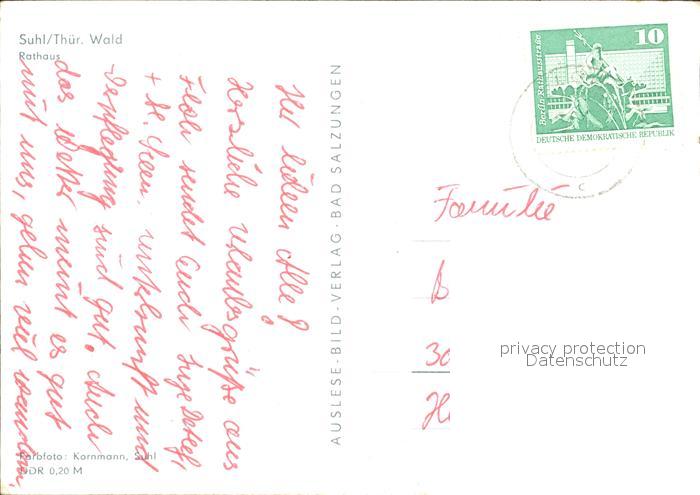 Suhl/Thür. Wald
Rathaus
Ihr Lieben Alle!
Herzliche Urlaubsgrüße aus
sendet Euch
+ Unterkunft und
Verpflegung sind gut. Auch
das Wetter meint es gut
mit uns, gehen viel wandern.
Farbfoto: Kornmann, Suhl
DDR 0,20 M
AUSLESE-BILD-VERLAG · BAD SALZUNGEN
Berlin, Rathausstraße
10
DEUTSCHE DEMOKRATISCHE REPUBLIK
c
Familie
30
privacy protection
Datenschutz